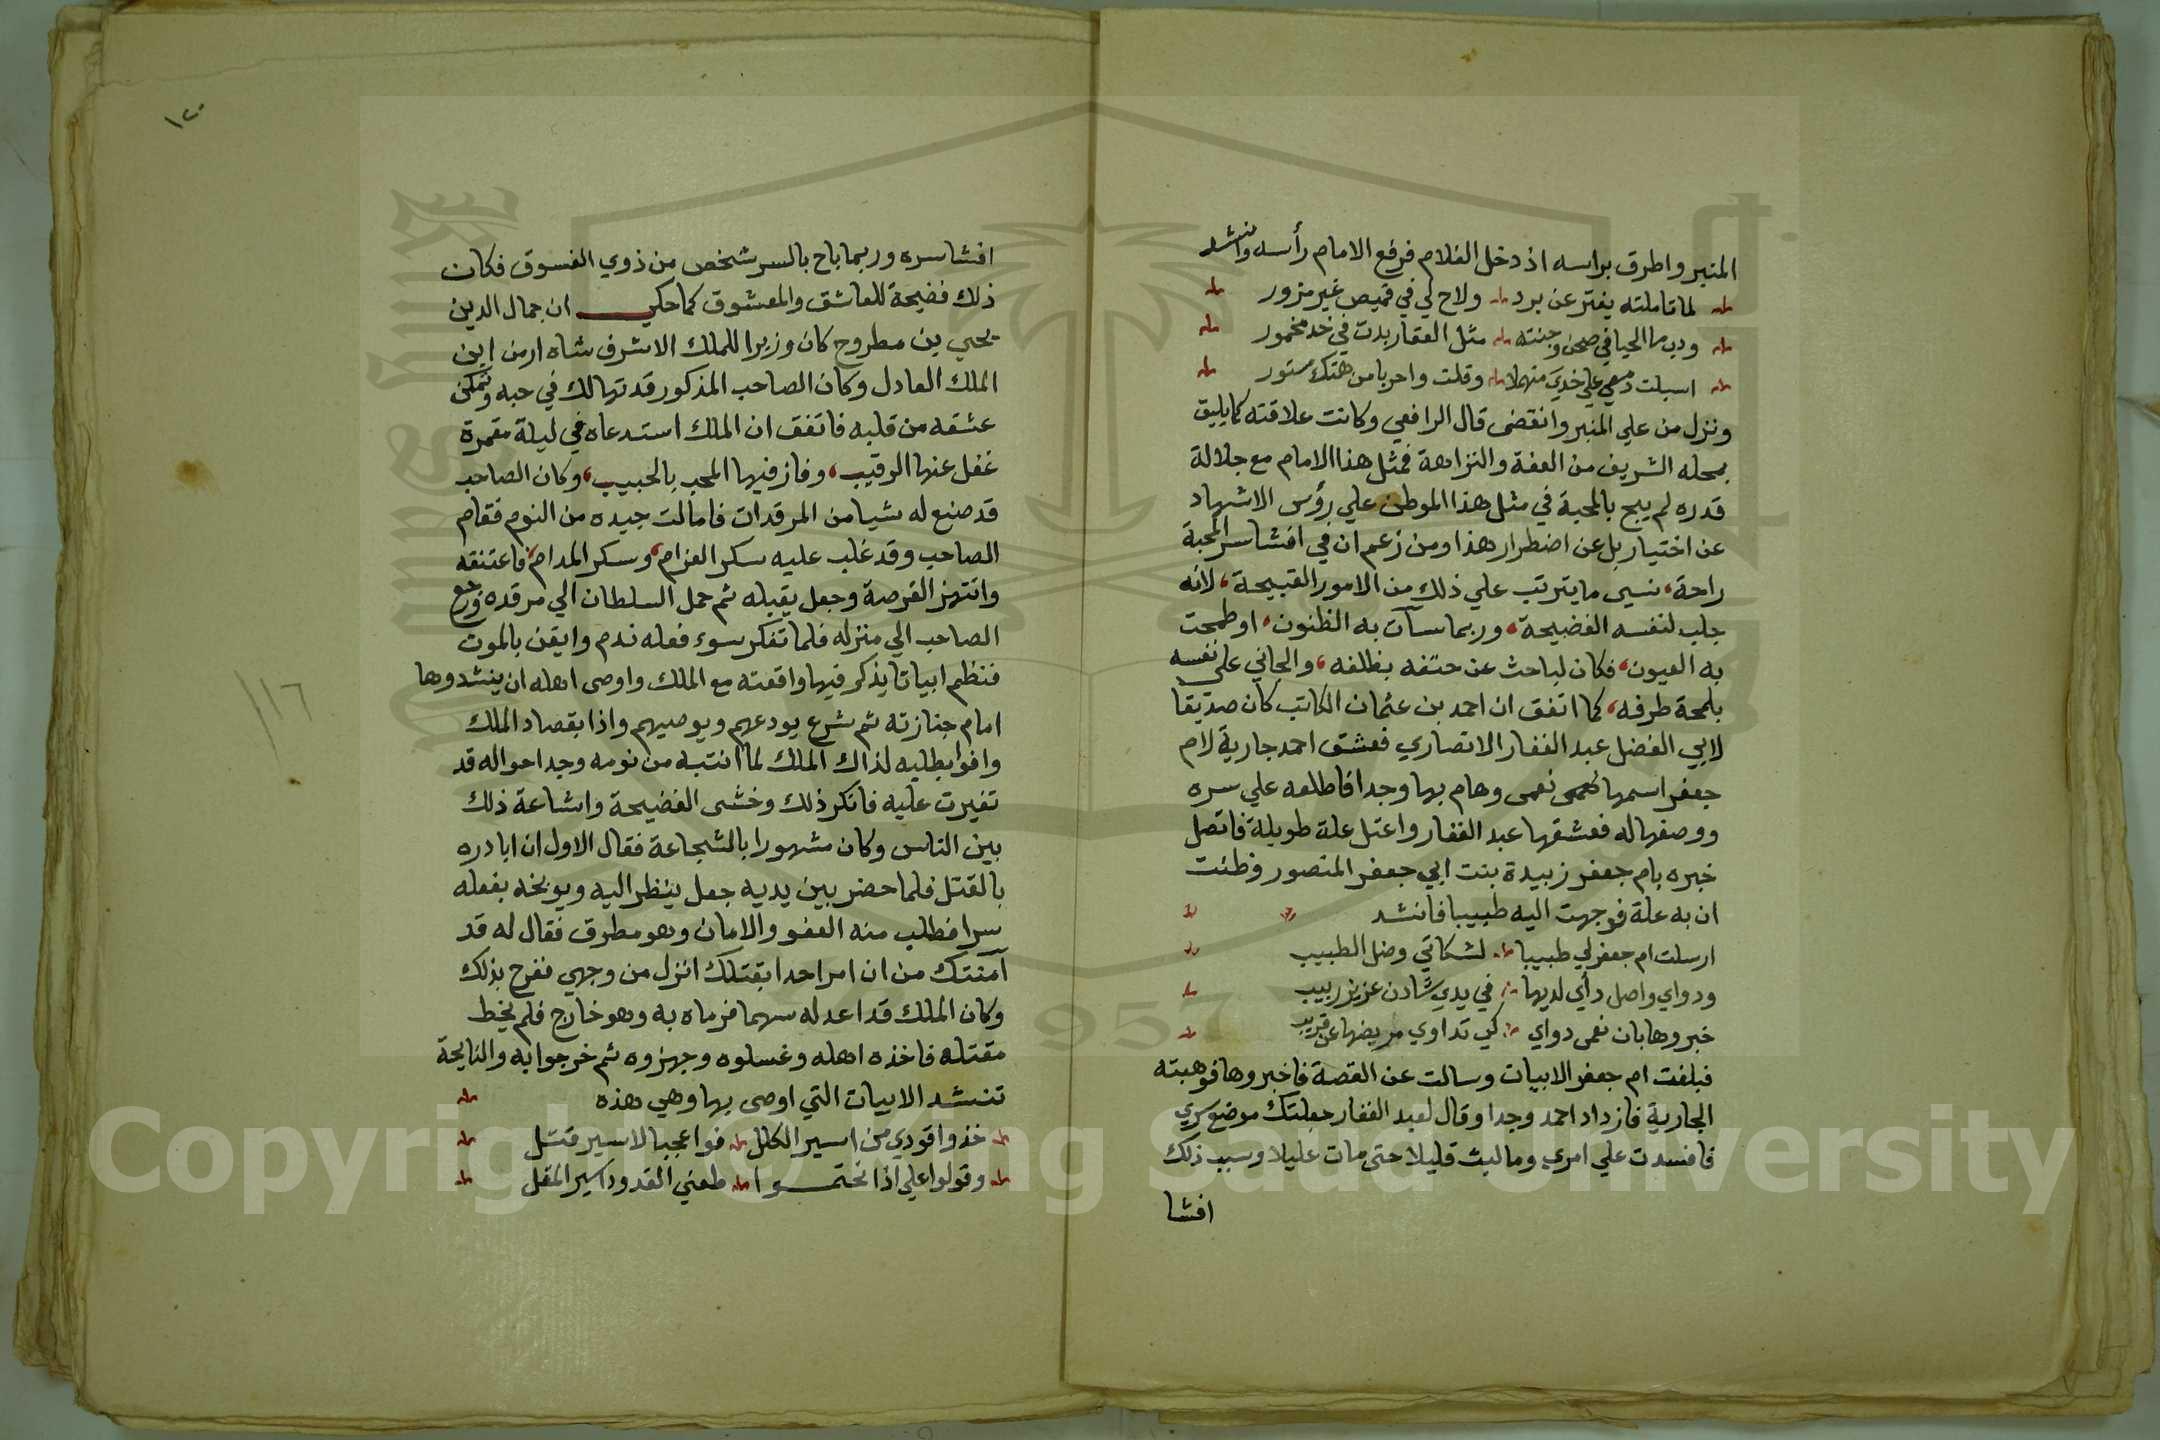 المنبر واطرق براسه اذ دخل الغلام فرفع الامام رأسه وانشد
لما تاملته يفتر عن برد ولاح لي في قميص غير مزرور
ودب ما الحيا في صحن وجنته مثل العقار بدت في خد مخمور
اسبلت دمعي علي خدي منهملا وقلت واحربا من هتك مستور
ونزل من علي المنبر وانقضى قال الرافعي وكانت علاقته كما يليق
بمحله الشريف من العفة والنزاهة فمثل هذا الامام مع جلالة
قدره لم يبح بالمحبة في مثل هذا الموطن علي رؤس الاشهاد
عن اختيار بل عن اضطرار هذا ومن زعم ان في افشا سر المحبة
راحة، نسي ما يترتب علي ذلك من الامور القبيحة، لانه
جلب لنفسه الفضيحة، وربما سآت به الظنون، او طمحت
به العيون، فكان لباحث عن حتفه بظلفه، والجاني علي نفسه
بلمحة طرفه، كما اتفق ان احمد بن عثمان الكاتب كان صديقا
لابي الفضل عبد الغفار الانصاري فعشق احمد جارية لام
جعفر اسمها نعمى وهام بها وجدا فاطلعه علي سره
ووصفها له فعشقها عبد الغفار واعتل علة طويلة فاتصل
خبره بام جعفر زبيدة بنت ابي جعفر المنصور وظنت
ان به علة فوجهت اليه طبيبا فانشد
ارسلت ام جعفر لي طبيبا لشكاتي وضل الطبيب
ودواي واصل دأي لديها في يدي شادن عزيز ربيب
خبروها بان نعمى دواي كي تداوي مريضها عن قريب
فبلغت ام جعفر الابيات وسالت عن القصة فاخبروها فوهبته
الجارية فازداد احمد وجدا وقال لعبد الغفار جعلتك موضع سري
فافسدت علي امري وما لبث قليلا حتى مات عليلا وسبب ذلك
افشا
١٢٠
افشا سره وربما باح بالسر شخص من ذوي الفسوق فكان
ذلك فضيحة للعاشق والمعشوق كما حكي ان جمال الدين
يحيي بن مطروح كان وزيرا للملك الاشرف شاه ارمن ابن
الملك العادل وكان الصاحب المذكور قد تهالك في حبه وتمكن
عشقه من قلبه فاتفق ان الملك استدعاه في ليلة مقمرة
غفل عنها الرقيب، وفاز فيها المحب بالحبيب، وكان الصاحب
قد صنع له شيا من المرقدات فامالت جيده من النوم فقام
الصاحب وقد غلب عليه سكر الغرام، وسكر المدام، فاعتنقه
وانتهز الفرصة وجعل يقبله ثم حمل السلطان الي مرقده ورجع
الصاحب الي منزله فلما تفكر سوء فعله ندم وايقن بالموت
فنظم ابياتا يذكر فيها واقعته مع الملك واوصى اهله ان ينشدوها
امام جنازته ثم شرع يودعهم ويوصيهم واذا بقصاد الملك
وافوا بطلبه لذاك الملك لما انتبه من نومه وجد احواله قد
تغيرت عليه فانكر ذلك وخشى الفضيحة واشاعة ذلك
بين الناس وكان مشهورا بالشجاعة فقال الاول ان ابادره
بالقتل فلما حضر بين يديه جعل ينظر اليه ويوبخه بفعله
سرا فطلب منه العفو والامان وهو مطرق فقال له قد
آمنتك من ان امر احدا بقتلك انزل من وجهي ففرح بذلك
وكان الملك قد اعد له سهما فرماه به وهو خارج فلم يخط
مقتله فاخذه اهله وغسلوه وجهزوه ثم خرجوا به والنايحة
تنشد الابيات التي اوصى بها وهي هذه
خذوا قودي من اسير الكلل فواعجبا لاسير قتل
وقولوا علي اذا نحتموا طعني القدود اسير المقل
١١٦
Copyright © King Saud University
1957